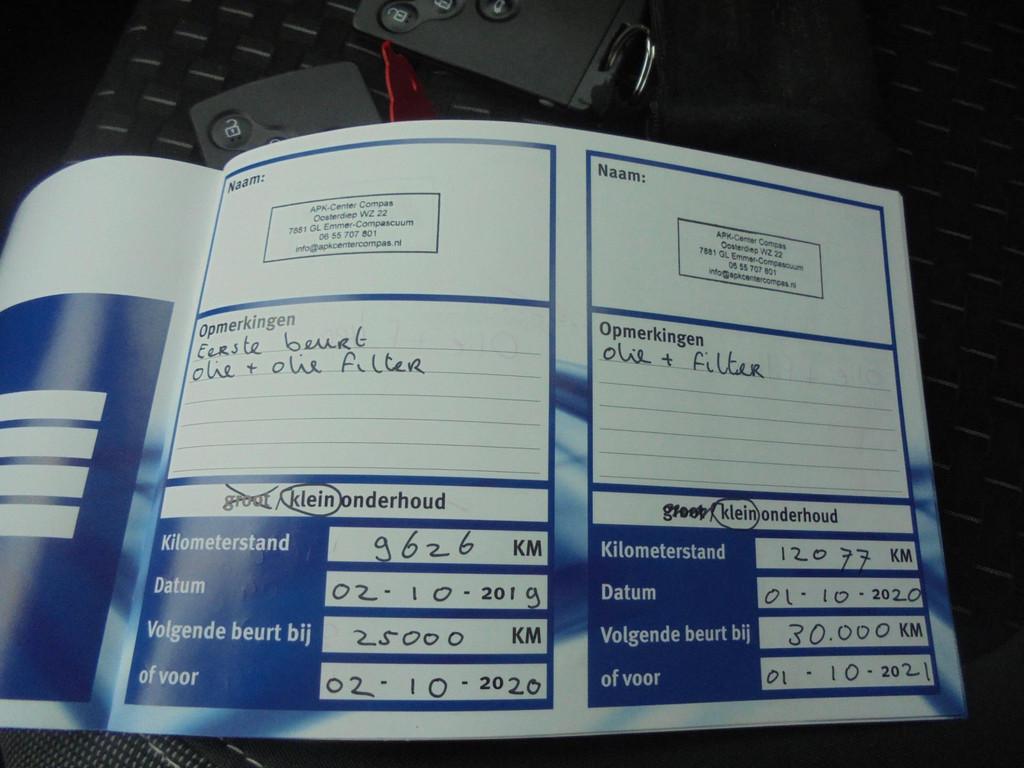 Naam:
APK-Center Compas
Oosterdiep WZ 22
7881 GL Emmer-Compascuum
06 55 707 801
info@apkcentercompas.nl
Opmerkingen
Eerste beurt
olie + olie filter
groot / klein onderhoud
Kilometerstand 9626 KM
Datum 02-10-2019
Volgende beurt bij 25000 KM
of voor 02-10-2020
Naam:
APK-Center Compas
Oosterdiep WZ 22
7881 GL Emmer-Compascuum
06 55 707 801
info@apkcentercompas.nl
Opmerkingen
olie + filter
groot / klein onderhoud
Kilometerstand 12077 KM
Datum 01-10-2020
Volgende beurt bij 30.000 KM
of voor 01-10-2021